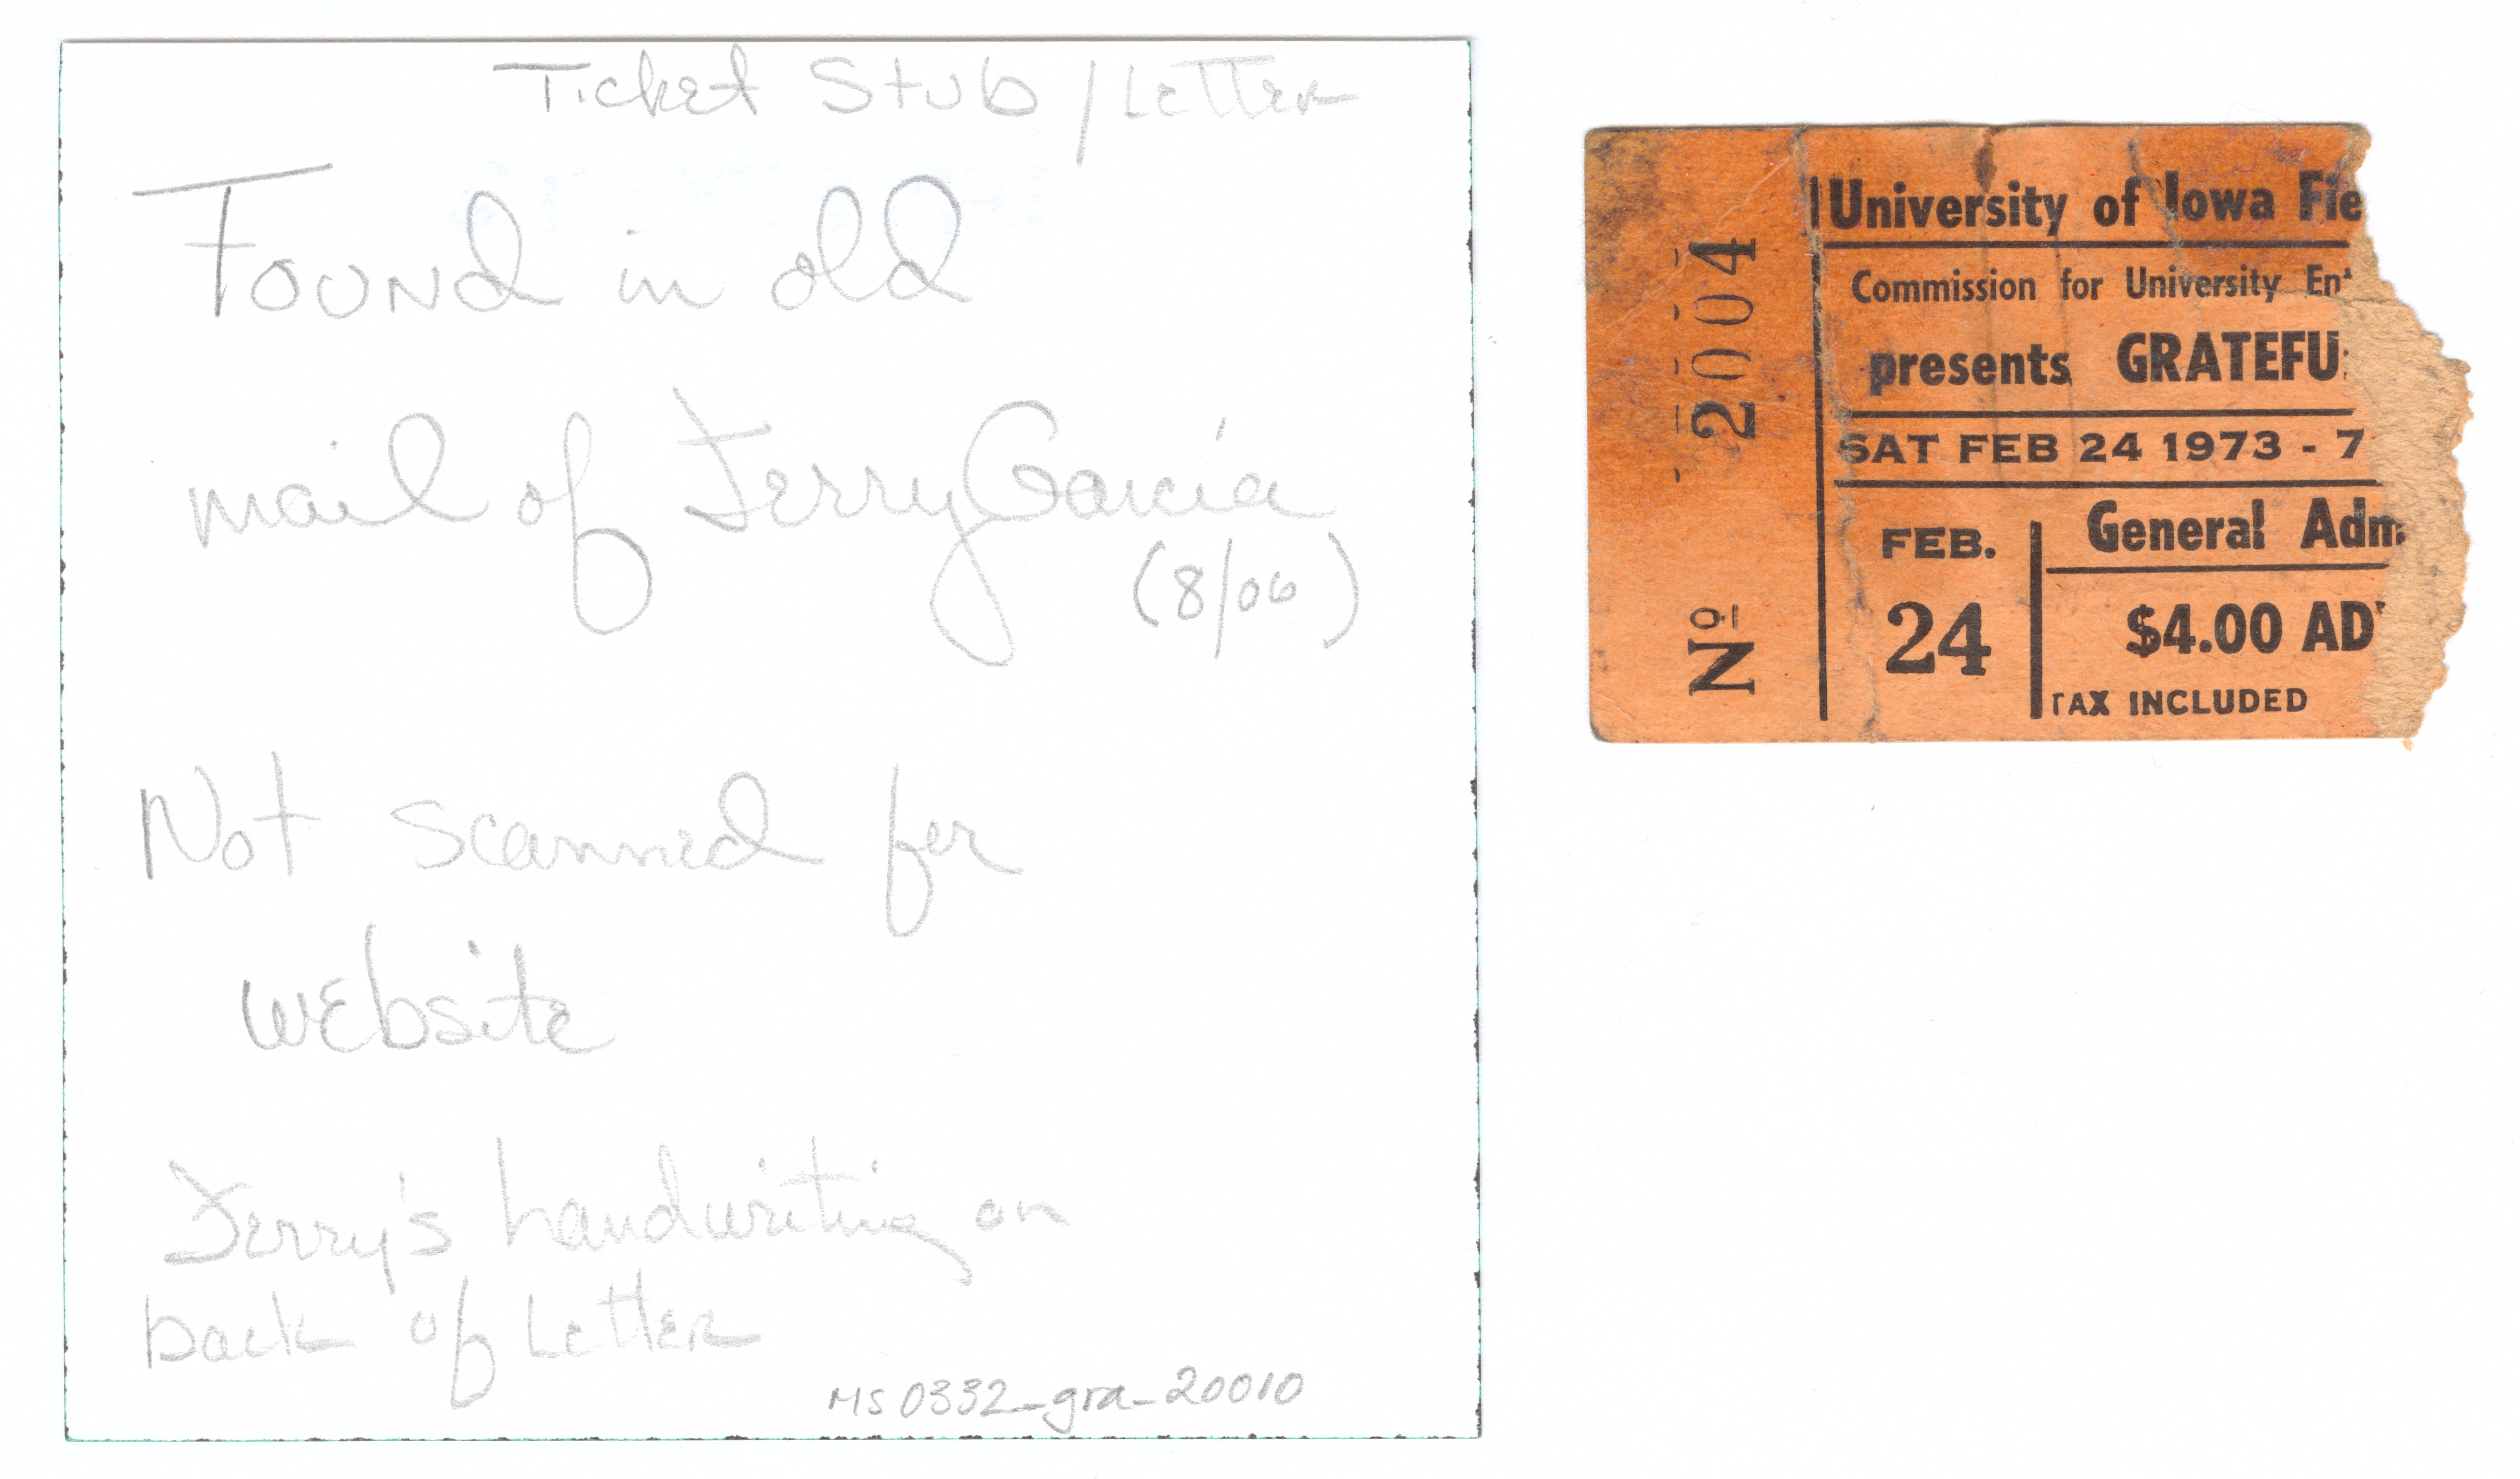 Ticket Stub / Letter
Found in old
mail of Jerry Garcia
(8/06)
Not scanned for
website
Jerry's handwriting on
back of Letter
MS0332_gra_20010
Nº 2004
University of Iowa Fie
Commission for University Ent
presents GRATEFU
SAT FEB 24 1973 - 7
FEB.
24
General Adm
$4.00 AD
TAX INCLUDED